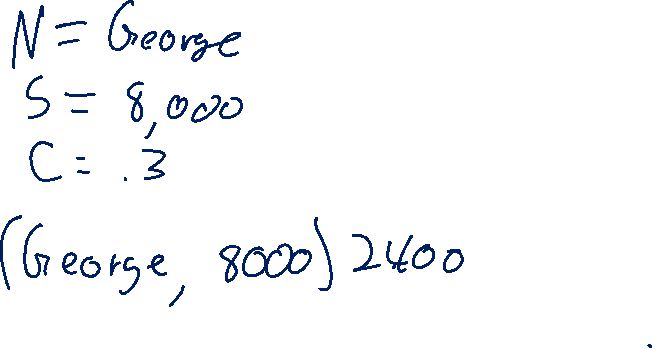 N = George
S = 8,000
C = .3
(George, 8000) 2400